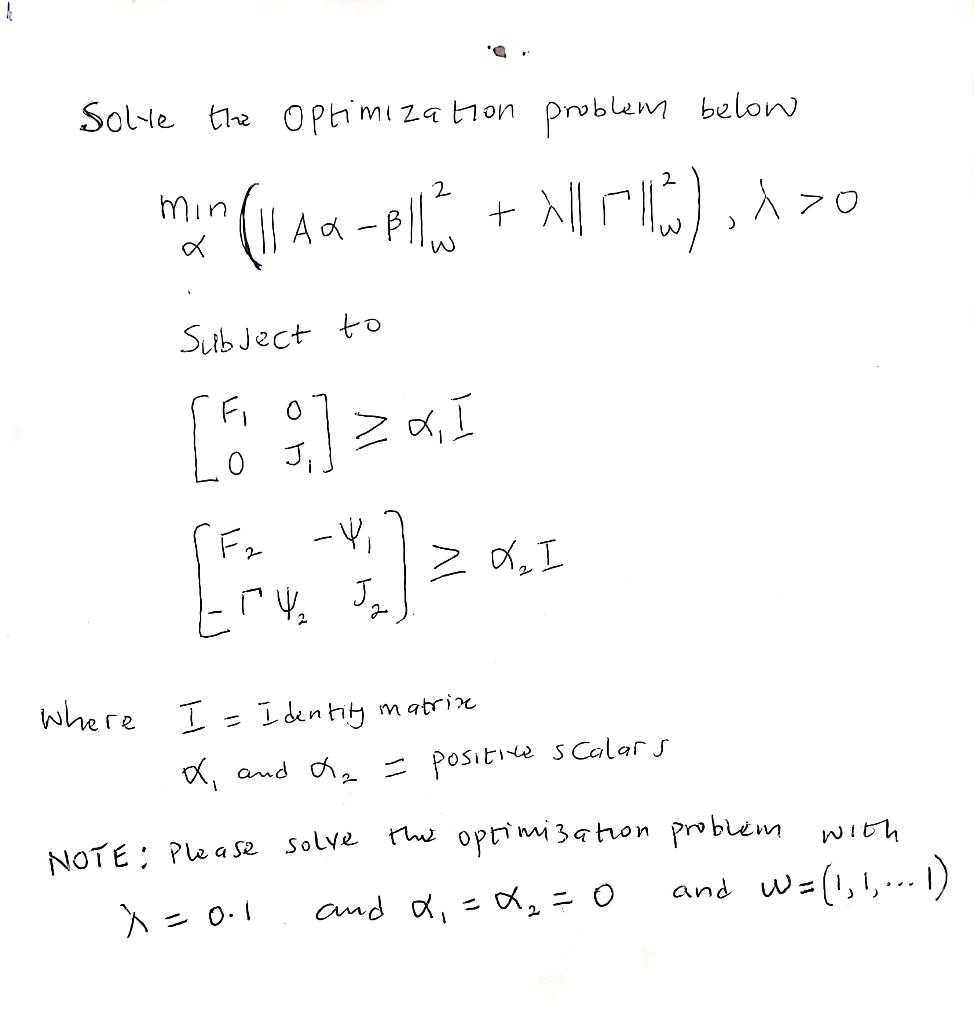 Solve the Optimization problem below
min α (|| Aα - β ||²_w + λ|| Γ ||²_w), λ > 0
Subject to
[F₁ 0; 0 J₁] ≥ α₁I
[F₂ -Ψ₁; -ΓΨ₂ J₂] ≥ α₂I
Where I = Identity matrix
α₁ and α₂ = positive scalars
NOTE: Please solve the optimization problem with
λ = 0.1 and α₁ = α₂ = 0 and w = (1, 1, ... 1)